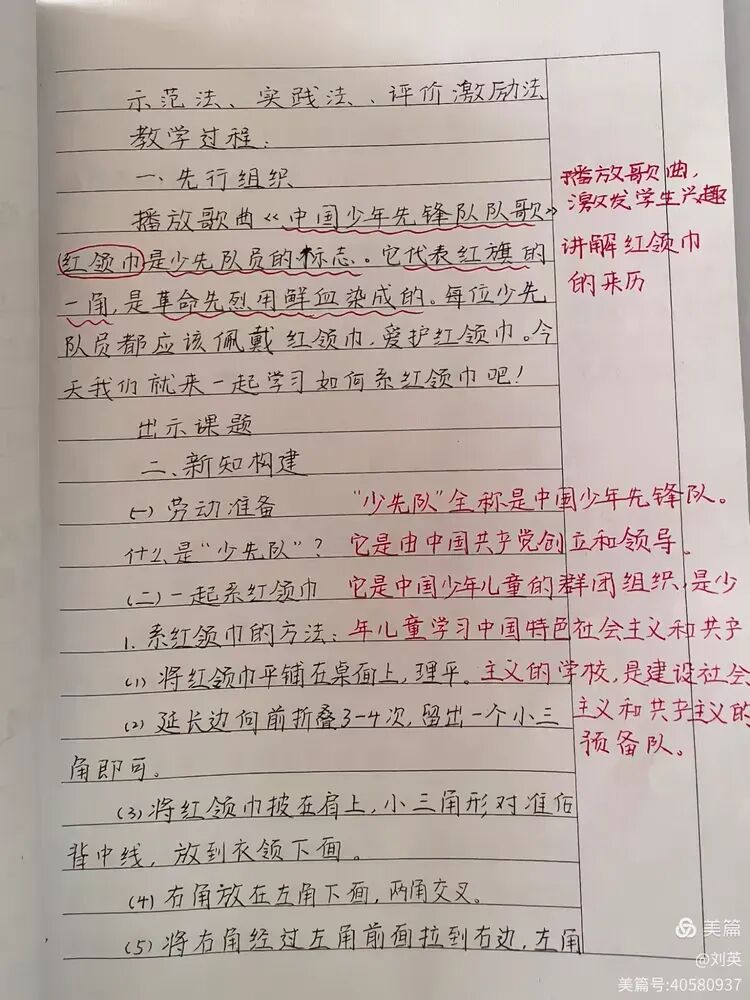 示范法、实践法、评价激励法
教学过程：
一、先行组织
播放歌曲《中国少年先锋队队歌》
红领巾是少先队员的标志。它代表红旗的
一角，是革命先烈用鲜血染成的。每位少先
队员都应该佩戴红领巾，爱护红领巾。今
天我们就来一起学习如何系红领巾吧！
出示课题
二、新知构建
(一) 劳动准备
什么是“少先队”？
(二) 一起系红领巾
1. 系红领巾的方法：
(1) 将红领巾平铺在桌面上，理平。
(2) 延长边向前折叠3-4次，留出一个小三
角即可。
(3) 将红领巾披在肩上，小三角形对准后
背中线，放到衣领下面。
(4) 右角放在左角下面，两角交叉。
(5) 将右角经过左角前面拉到右边，左角
播放歌曲，
激发学生兴趣
讲解红领巾
的来历
“少先队”全称是中国少年先锋队。
它是由中国共产党创立和领导。
它是中国少年儿童的群团组织，是少
年儿童学习中国特色社会主义和共产
主义的学校，是建设社会
主义和共产主义的
预备队。
美篇
@刘英
美篇号:40580937